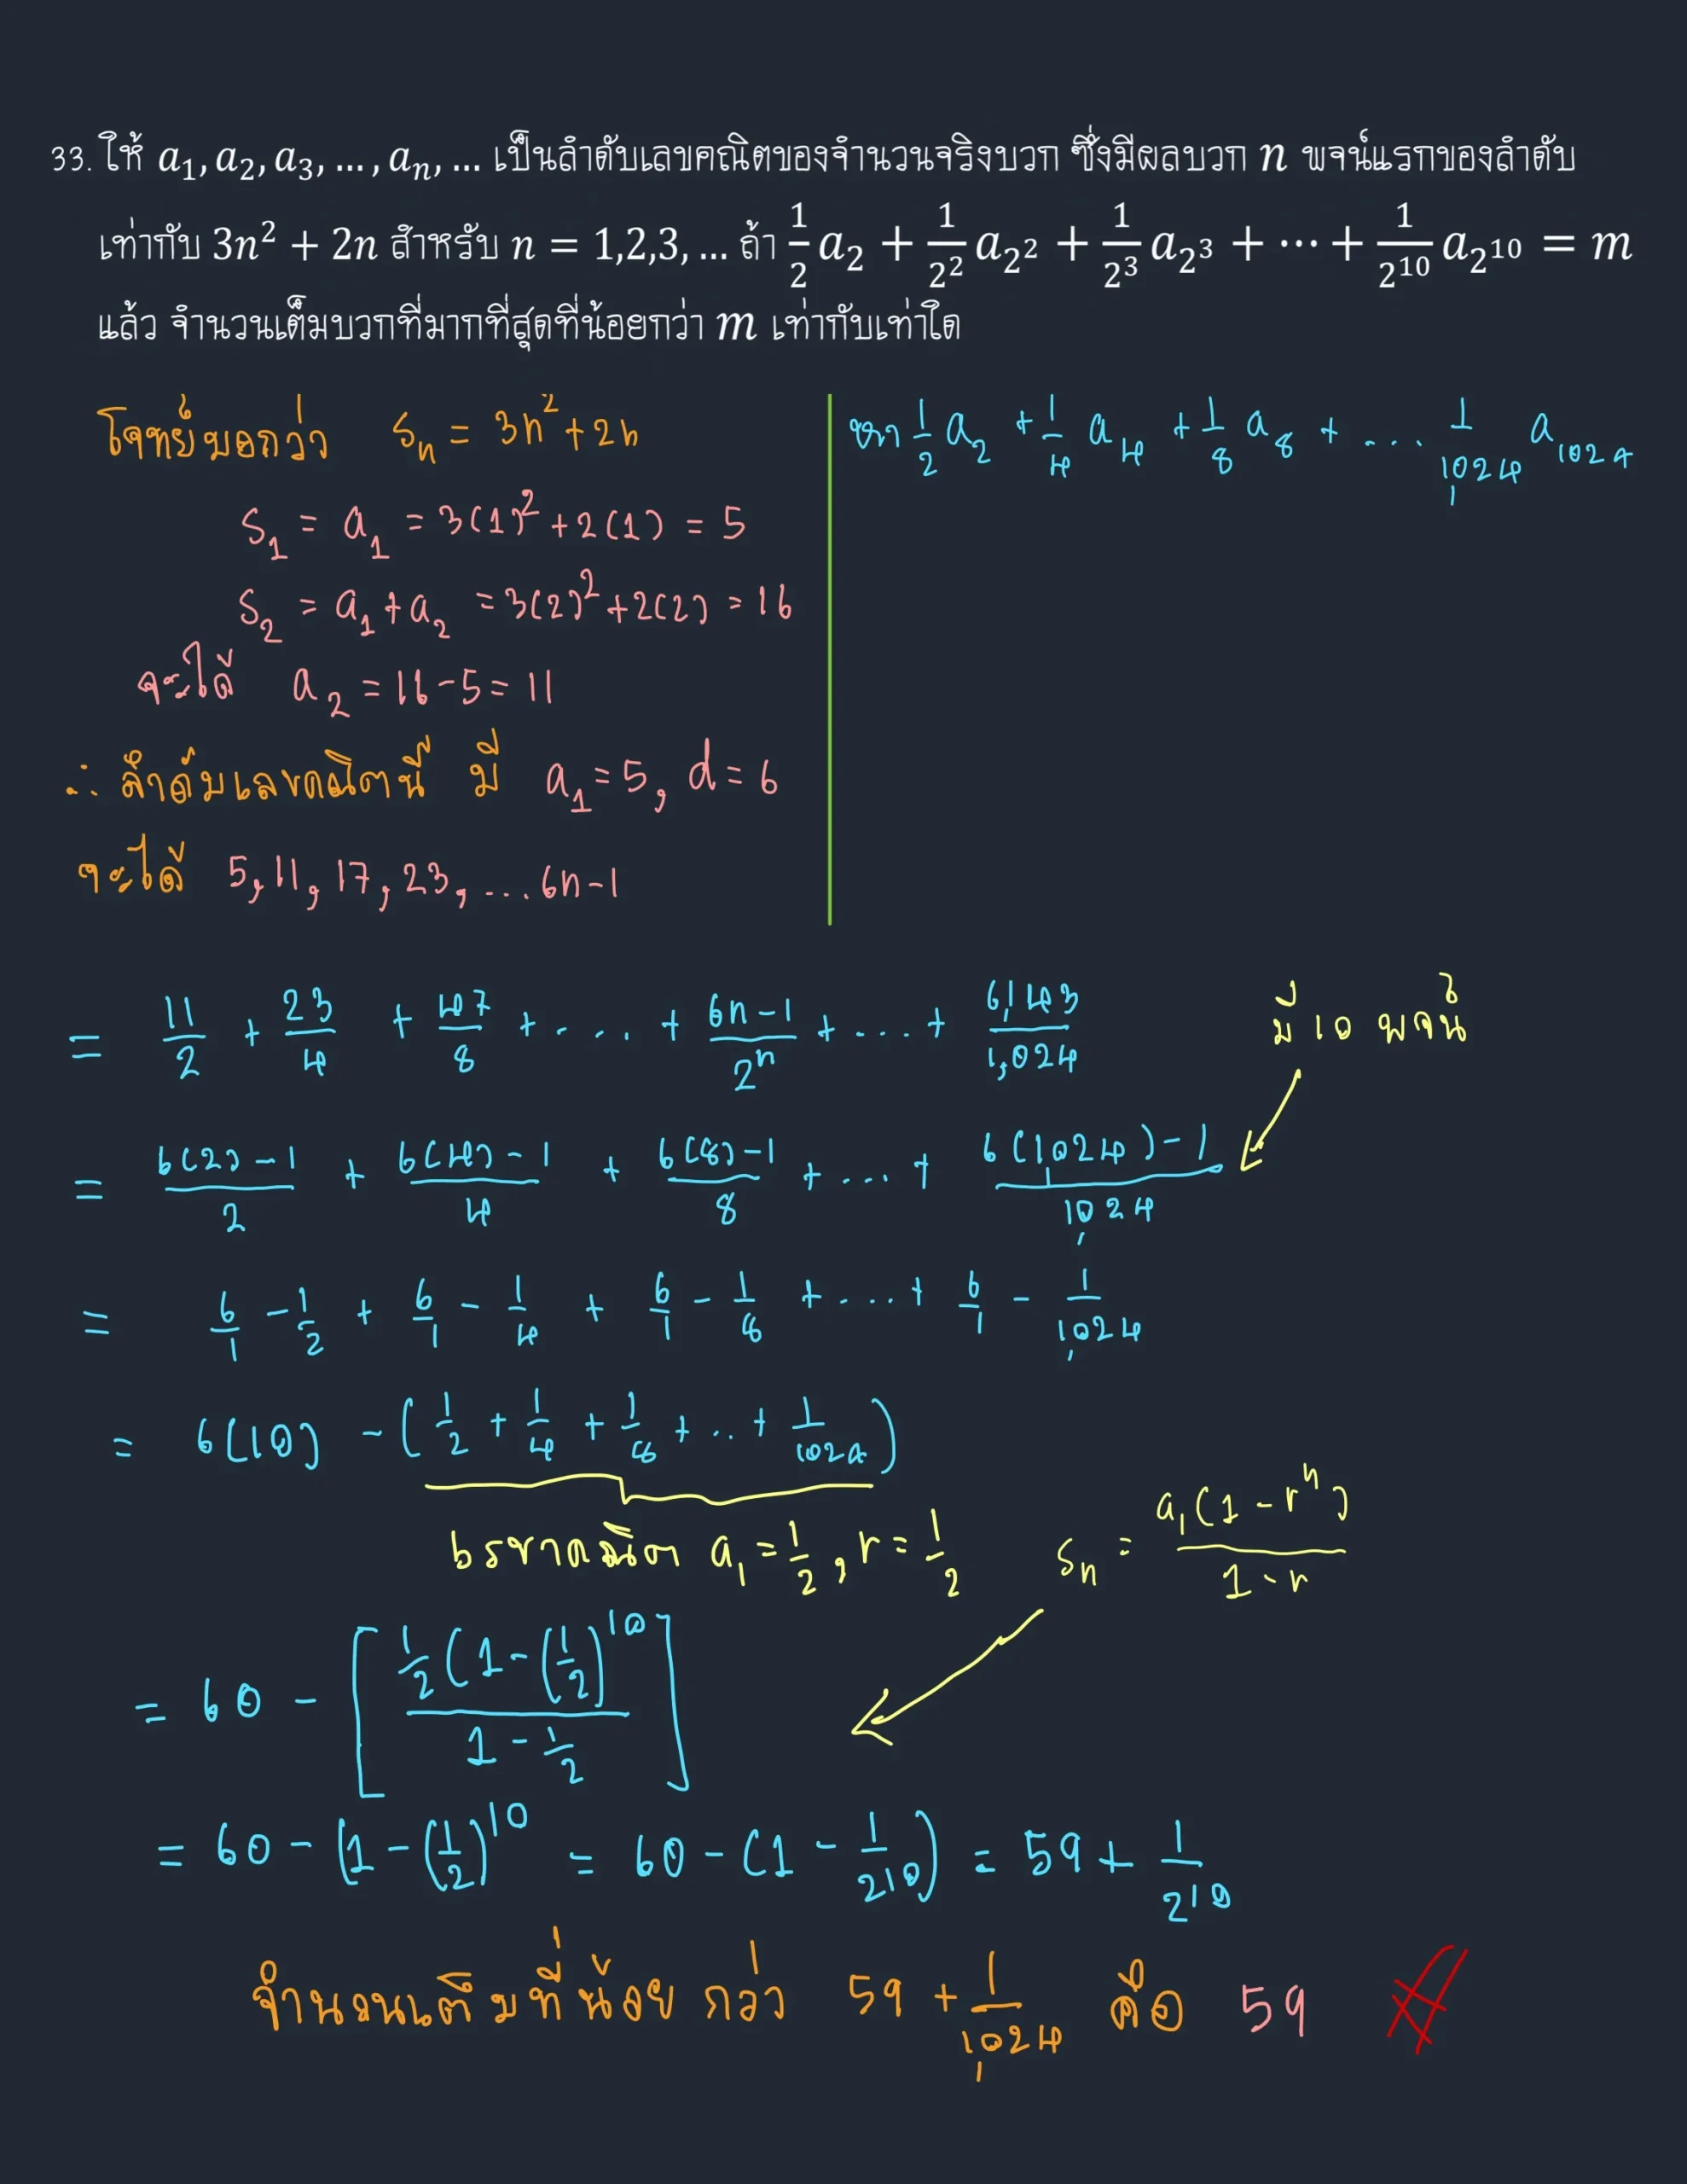 33. ให้ a₁, a₂, a₃, ..., aₙ, ... เป็นลำดับเลขคณิตของจำนวนจริงบวก ซึ่งมีผลบวก n พจน์แรกของลำดับ
เท่ากับ 3n² + 2n สำหรับ n = 1,2,3, ... ถ้า 1/2 a₂ + 1/2² a_{2²} + 1/2³ a_{2³} + ⋯ + 1/2¹⁰ a_{2¹⁰} = m
แล้ว จำนวนเต็มบวกที่มากที่สุดที่น้อยกว่า m เท่ากับเท่าใด
โจทย์บอกว่า Sₙ = 3n² + 2n
S₁ = a₁ = 3(1)² + 2(1) = 5
S₂ = a₁ + a₂ = 3(2)² + 2(2) = 16
จะได้ a₂ = 16 - 5 = 11
∴ ลำดับเลขคณิตนี้ มี a₁ = 5, d = 6
จะได้ 5, 11, 17, 23, ... 6n-1
หา 1/2 a₂ + 1/4 a₄ + 1/8 a₈ + ... 1/1,024 a₁₀₂₄
= 11/2 + 23/4 + 47/8 + .... + (6n-1)/2ⁿ + ... + 6,143/1,024
มี 10 พจน์
= (6(2)-1)/2 + (6(4)-1)/4 + (6(8)-1)/8 + ... + (6(1,024)-1)/1,024
= 6/1 - 1/2 + 6/1 - 1/4 + 6/1 - 1/8 + ... + 6/1 - 1/1,024
= 6(10) - (1/2 + 1/4 + 1/8 + .. + 1/1024)
เรขาคณิต a₁ = 1/2, r = 1/2 Sₙ = a₁(1 - rⁿ)/(1 - r)
= 60 - [1/2(1-(1/2)¹⁰/(1 - 1/2)]
= 60 - (1 - (1/2)¹⁰ = 60 - (1 - 1/2¹⁰) = 59 + 1/2¹⁰
จำนวนเต็มที่น้อยกว่า 59 + 1/1,024 คือ 59